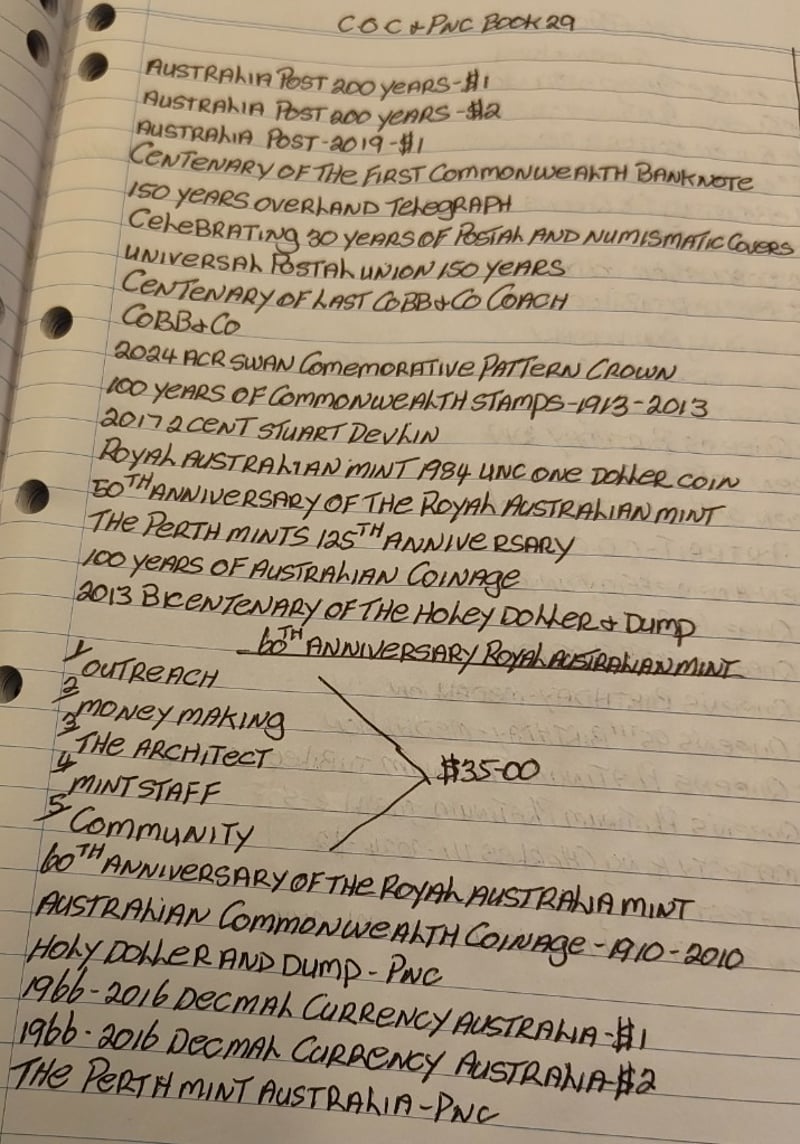 COC & PNC BOOK 29
AUSTRALIA POST 200 YEARS - $1
AUSTRALIA POST 200 YEARS - $2
AUSTRALIA POST - 2019 - $1
CENTENARY OF THE FIRST COMMONWEALTH BANKNOTE
150 YEARS OVERLAND TELEGRAPH
CELEBRATING 30 YEARS OF POSTAL AND NUMISMATIC COVERS
UNIVERSAL POSTAL UNION 150 YEARS
CENTENARY OF LAST COBB & CO COACH
COBB & CO
2024 ACR SWAN COMEMORATIVE PATTERN CROWN
100 YEARS OF COMMONWEALTH STAMPS - 1913 - 2013
2017 2 CENT STUART DEVLIN
ROYAL AUSTRALIAN MINT 1984 UNC ONE DOLLER COIN
50TH ANNIVERSARY OF THE ROYAL AUSTRALIAN MINT
THE PERTH MINTS 125TH ANNIVERSARY
100 YEARS OF AUSTRALIAN COINAGE
2013 BICENTENARY OF THE HOLEY DOLLER & DUMP
60TH ANNIVERSARY ROYAL AUSTRALIAN MINT
1 OUTREACH
2 MONEY MAKING
3 THE ARCHITECT
4 MINT STAFF
5 COMMUNITY
$35-00
60TH ANNIVERSARY OF THE ROYAL AUSTRALIA MINT
AUSTRALIAN COMMONWEALTH COINAGE - 1910 - 2010
HOLY DOLLER AND DUMP - PNC
1966 - 2016 DECMAL CURRENCY AUSTRALIA - $1
1966 - 2016 DECMAL CURRENCY AUSTRALIA - $2
THE PERTH MINT AUSTRALIA - PNC